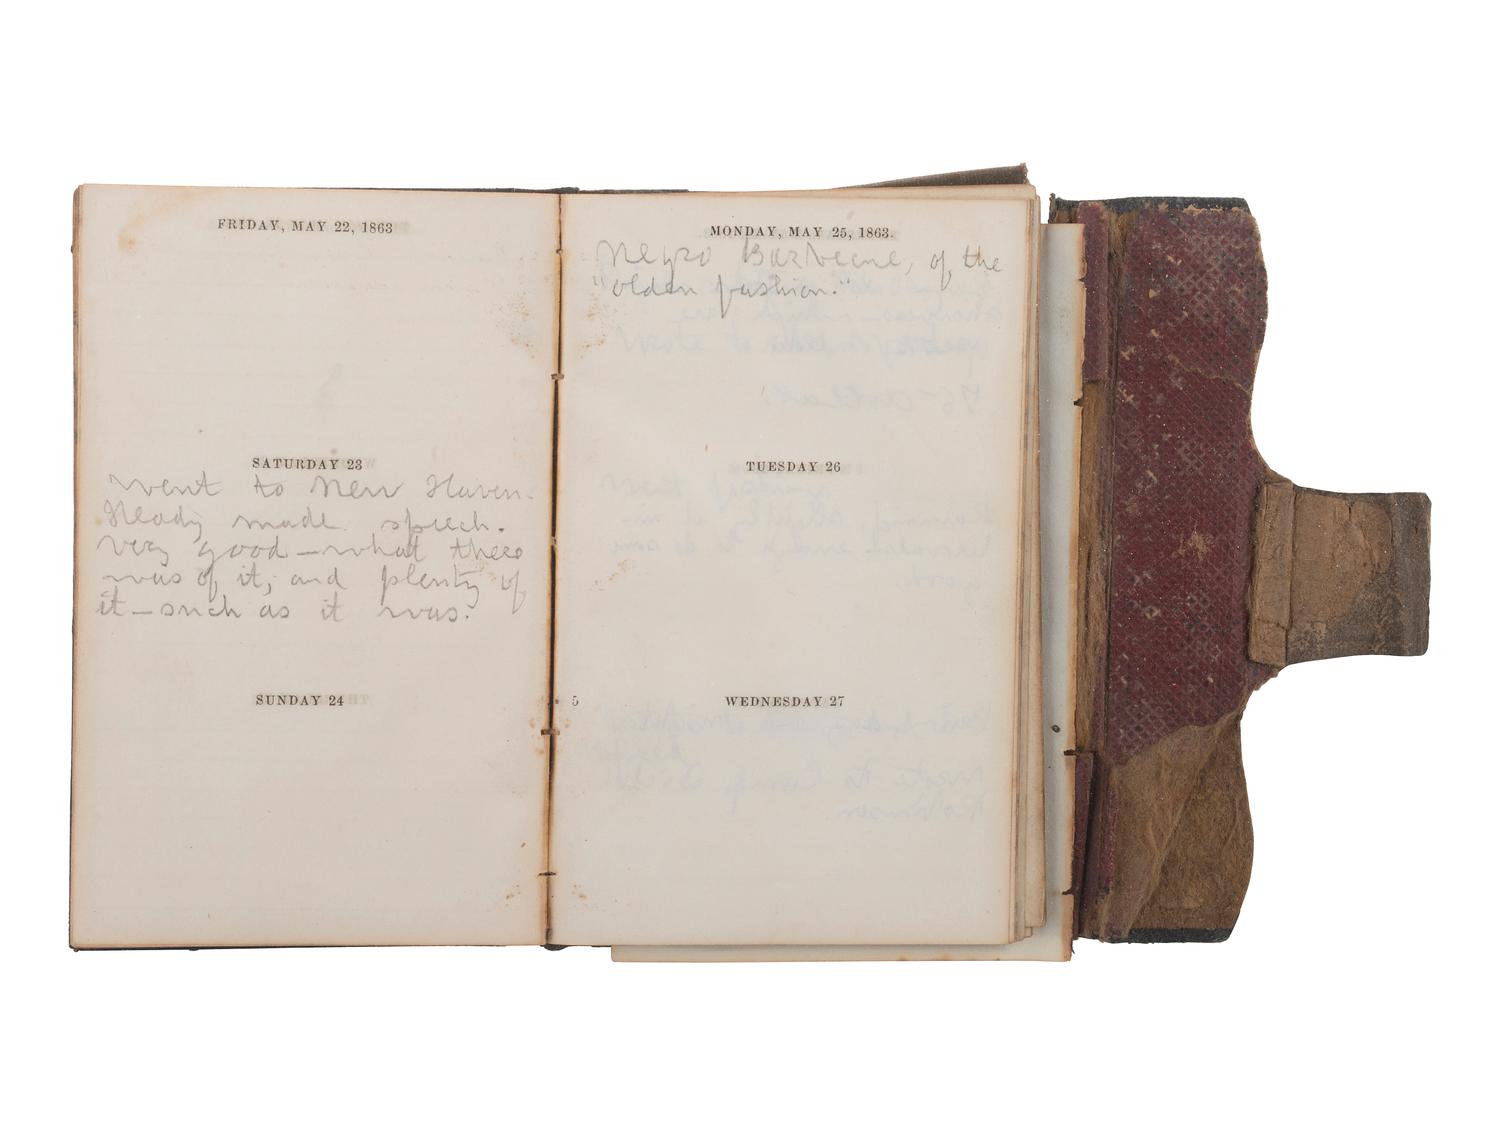 FRIDAY, MAY 22, 1863
SATURDAY 23
went to New Haven.
Ready made speech.
Very good—what there
was of it; and plenty of
it—such as it was.
SUNDAY 24
MONDAY, MAY 25, 1863.
Negro Barbecue, of the
"olden fashion."
TUESDAY 26
5
WEDNESDAY 27